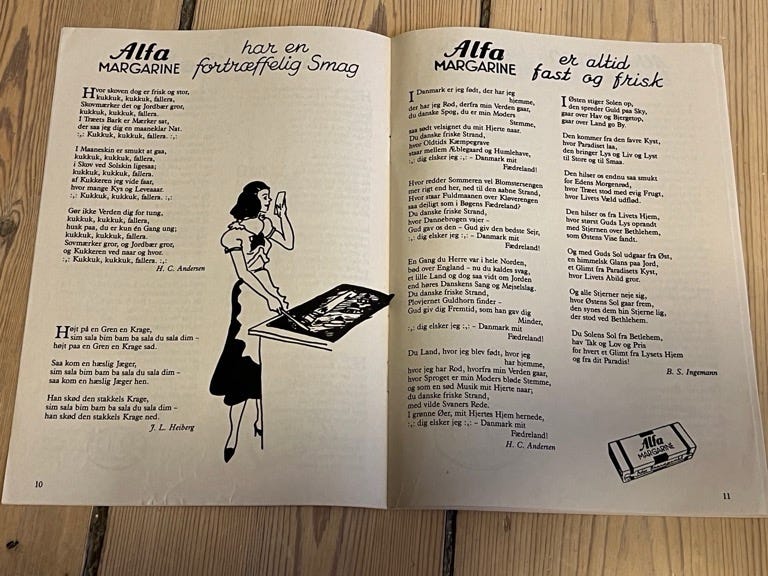 Alfa
MARGARINE
har en
fortræffelig Smag
Hvor skoven dog er frisk og stor,
kukkuk, kukkuk, fallera,
Skovmærker det og Jordbær gror,
kukkuk, kukkuk, fallera.
I Træets Bark er Mærker sat,
der saa jeg dig en maaneklar Nat.
:,: Kukkuk, kukkuk, fallera. :,:
I Maaneskin er smukt at gaa,
kukkuk, kukkuk, fallera,
i Skov ved Solskin ligesaa;
kukkuk, kukkuk, fallera,
af Kukkeren jeg vide faar,
hvor mange Kys og Leveaar.
:,: Kukkuk, kukkuk, fallera. :,:
Gør ikke Verden dig for tung,
kukkuk, kukkuk, fallera,
husk paa, du er kun én Gang ung;
kukkuk, kukkuk, fallera.
Sovmærker gror, og Jordbær gror,
og Kukkeren ved naar og hvor.
:,: Kukkuk, kukkuk, fallera. :,:
H. C. Andersen
Højt på en Gren en Krage,
sim sala bim bam ba sala du sala dim –
højt paa en Gren en Krage sad.
Saa kom en hæslig Jæger,
sim sala bim bam ba sala du sala dim –
saa kom en hæslig Jæger hen.
Han skød den stakkels Krage,
sim sala bim bam ba sala du sala dim –
han skød den stakkels Krage ned.
J. L. Heiberg
10
Alfa
MARGARINE
er altid
fast og frisk
I Danmark er jeg født, der har jeg
hjemme,
der har jeg Rod, derfra min Verden gaar,
du danske Sprog, du er min Moders
Stemme,
saa sødt velsignet du mit Hjerte naar.
Du danske friske Strand,
hvor Oldtids Kæmpegrave
staar mellem Æblegaard og Humlehave,
:,: dig elsker jeg :,: – Danmark mit
Fædreland!
Hvor redder Sommeren vel Blomstersengen
mer rigt end her, ned til den aabne Strand,
Hvor staar Fuldmaanen over Kløverengen
saa dejligt som i Bøgens Fædreland?
Du danske friske Strand,
hvor Dannebrogen vajer –
Gud gav os den – Gud giv den bedste Sejr,
:,: dig elsker jeg :,: – Danmark mit
Fædreland!
En Gang du Herre var i hele Norden,
bød over England – nu du kaldes svag,
et lille Land og dog saa vidt om Jorden
end høres Danskens Sang og Mejselslag.
Du danske friske Strand,
Plovjernet Guldhorn finder –
Gud giv dig Fremtid, som han gav dig
Minder,
:,: dig elsker jeg :,: – Danmark mit
Fædreland!
Du Land, hvor jeg blev født, hvor jeg
har hjemme,
hvor jeg har Rod, hvorfra min Verden gaar,
hvor Sproget er min Moders bløde Stemme,
og som en sød Musik mit Hjerte naar;
du danske friske Strand,
med vilde Svaners Rede.
I grønne Øer, mit Hjertes Hjem hernede,
:,: dig elsker jeg :,: – Danmark mit
Fædreland!
H. C. Andersen
I Østen stiger Solen op,
den spreder Guld paa Sky,
gaar over Hav og Bjergetop,
gaar over Land og By.
Den kommer fra den favre Kyst,
hvor Paradiset laa,
den bringer Lys og Liv og Lyst
til Store og til Smaa.
Den hilser os endnu saa smukt
fra Edens Morgenrød,
hvor Træet stod med evig Frugt,
hvor Livets Væld udflød.
Den hilser os fra Livets Hjem,
hvor størst Guds Lys oprandt
med Stjernen over Bethlehem,
som Østens Vise fandt.
Og med Guds Sol udgaar fra Øst,
en himmelsk Glans paa Jord,
et Glimt fra Paradisets Kyst,
hvor Livets Abild gror.
Og alle Stjerner neje sig,
hvor Østens Sol gaar frem,
den synes dem hin Stjerne lig,
der stod ved Bethlehem.
Du Solens Sol fra Betlehem,
hav Tak og Lov og Pris
for hvert et Glimt fra Lysets Hjem
og fra dit Paradis!
B. S. Ingemann
Alfa
MARGARINE
11